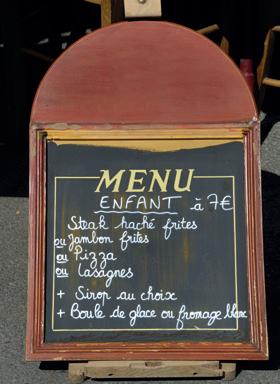 MENU
ENFANT à 7€
Steak haché frites
ou Jambon frites
ou Pizza
ou Lasagnes
+ Sirop au choix
+ Boule de glace ou fromage blanc